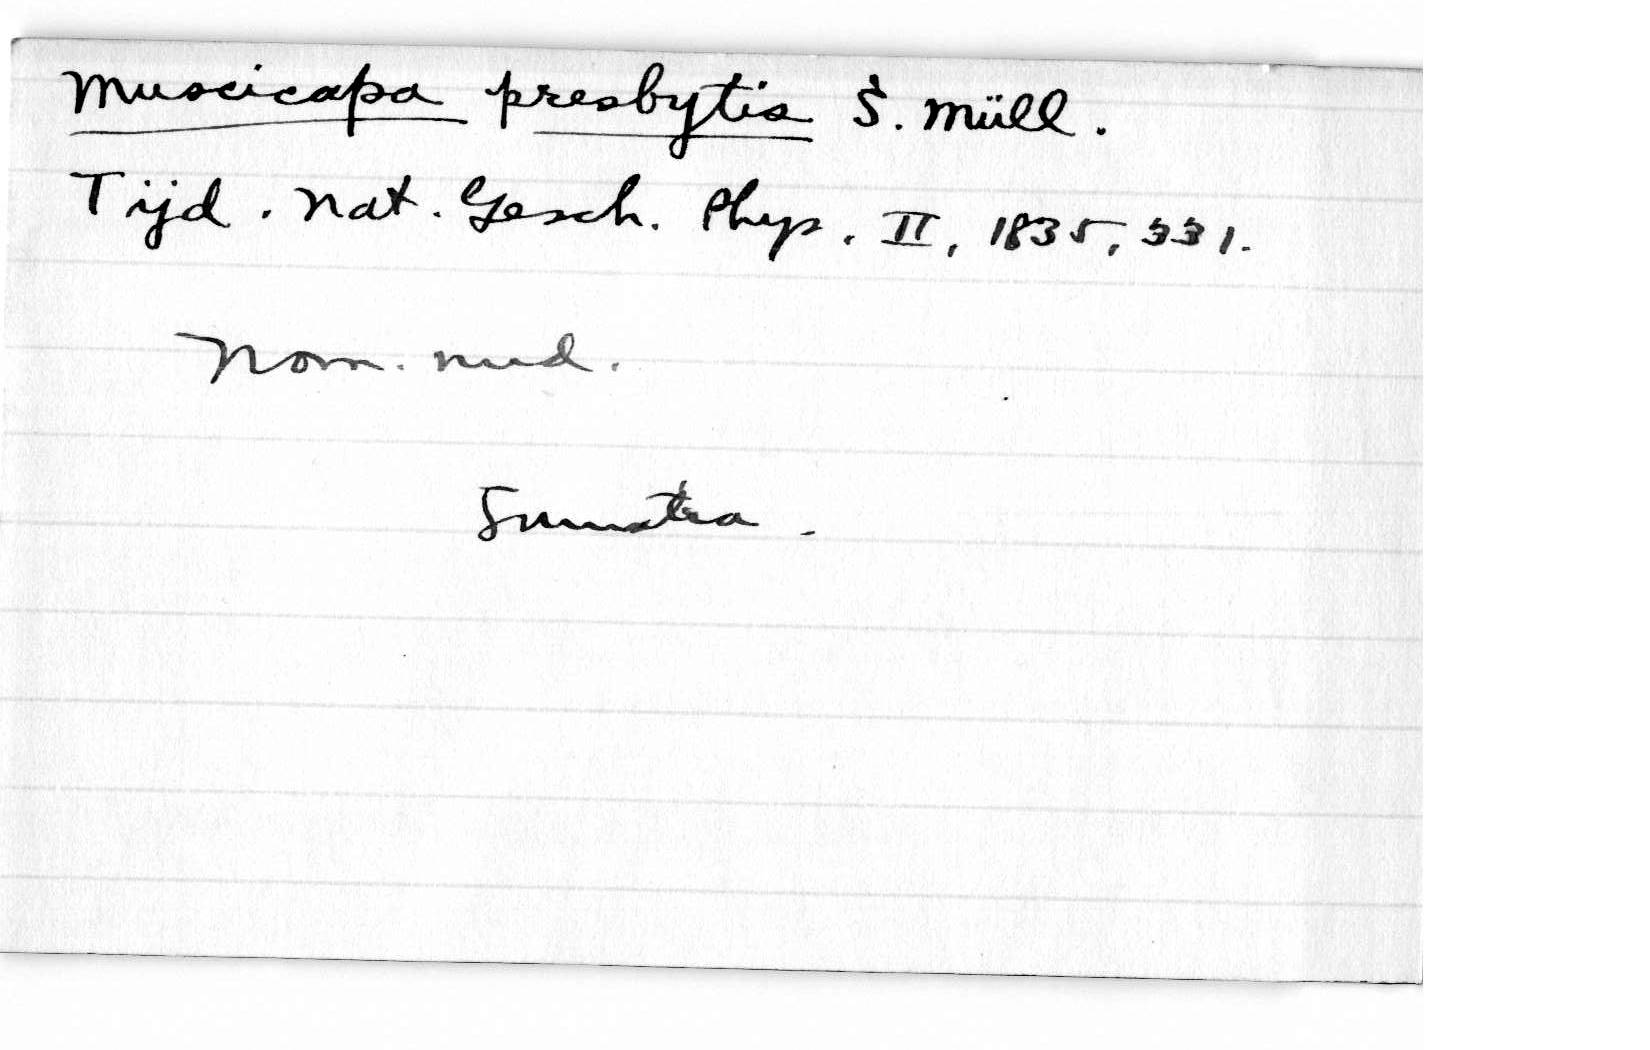 Muscicapa presbytis S. Müll.
Tijd. Nat. Gesch. Phys. II, 1835, 331.
Nom. nud.
Sumatra.